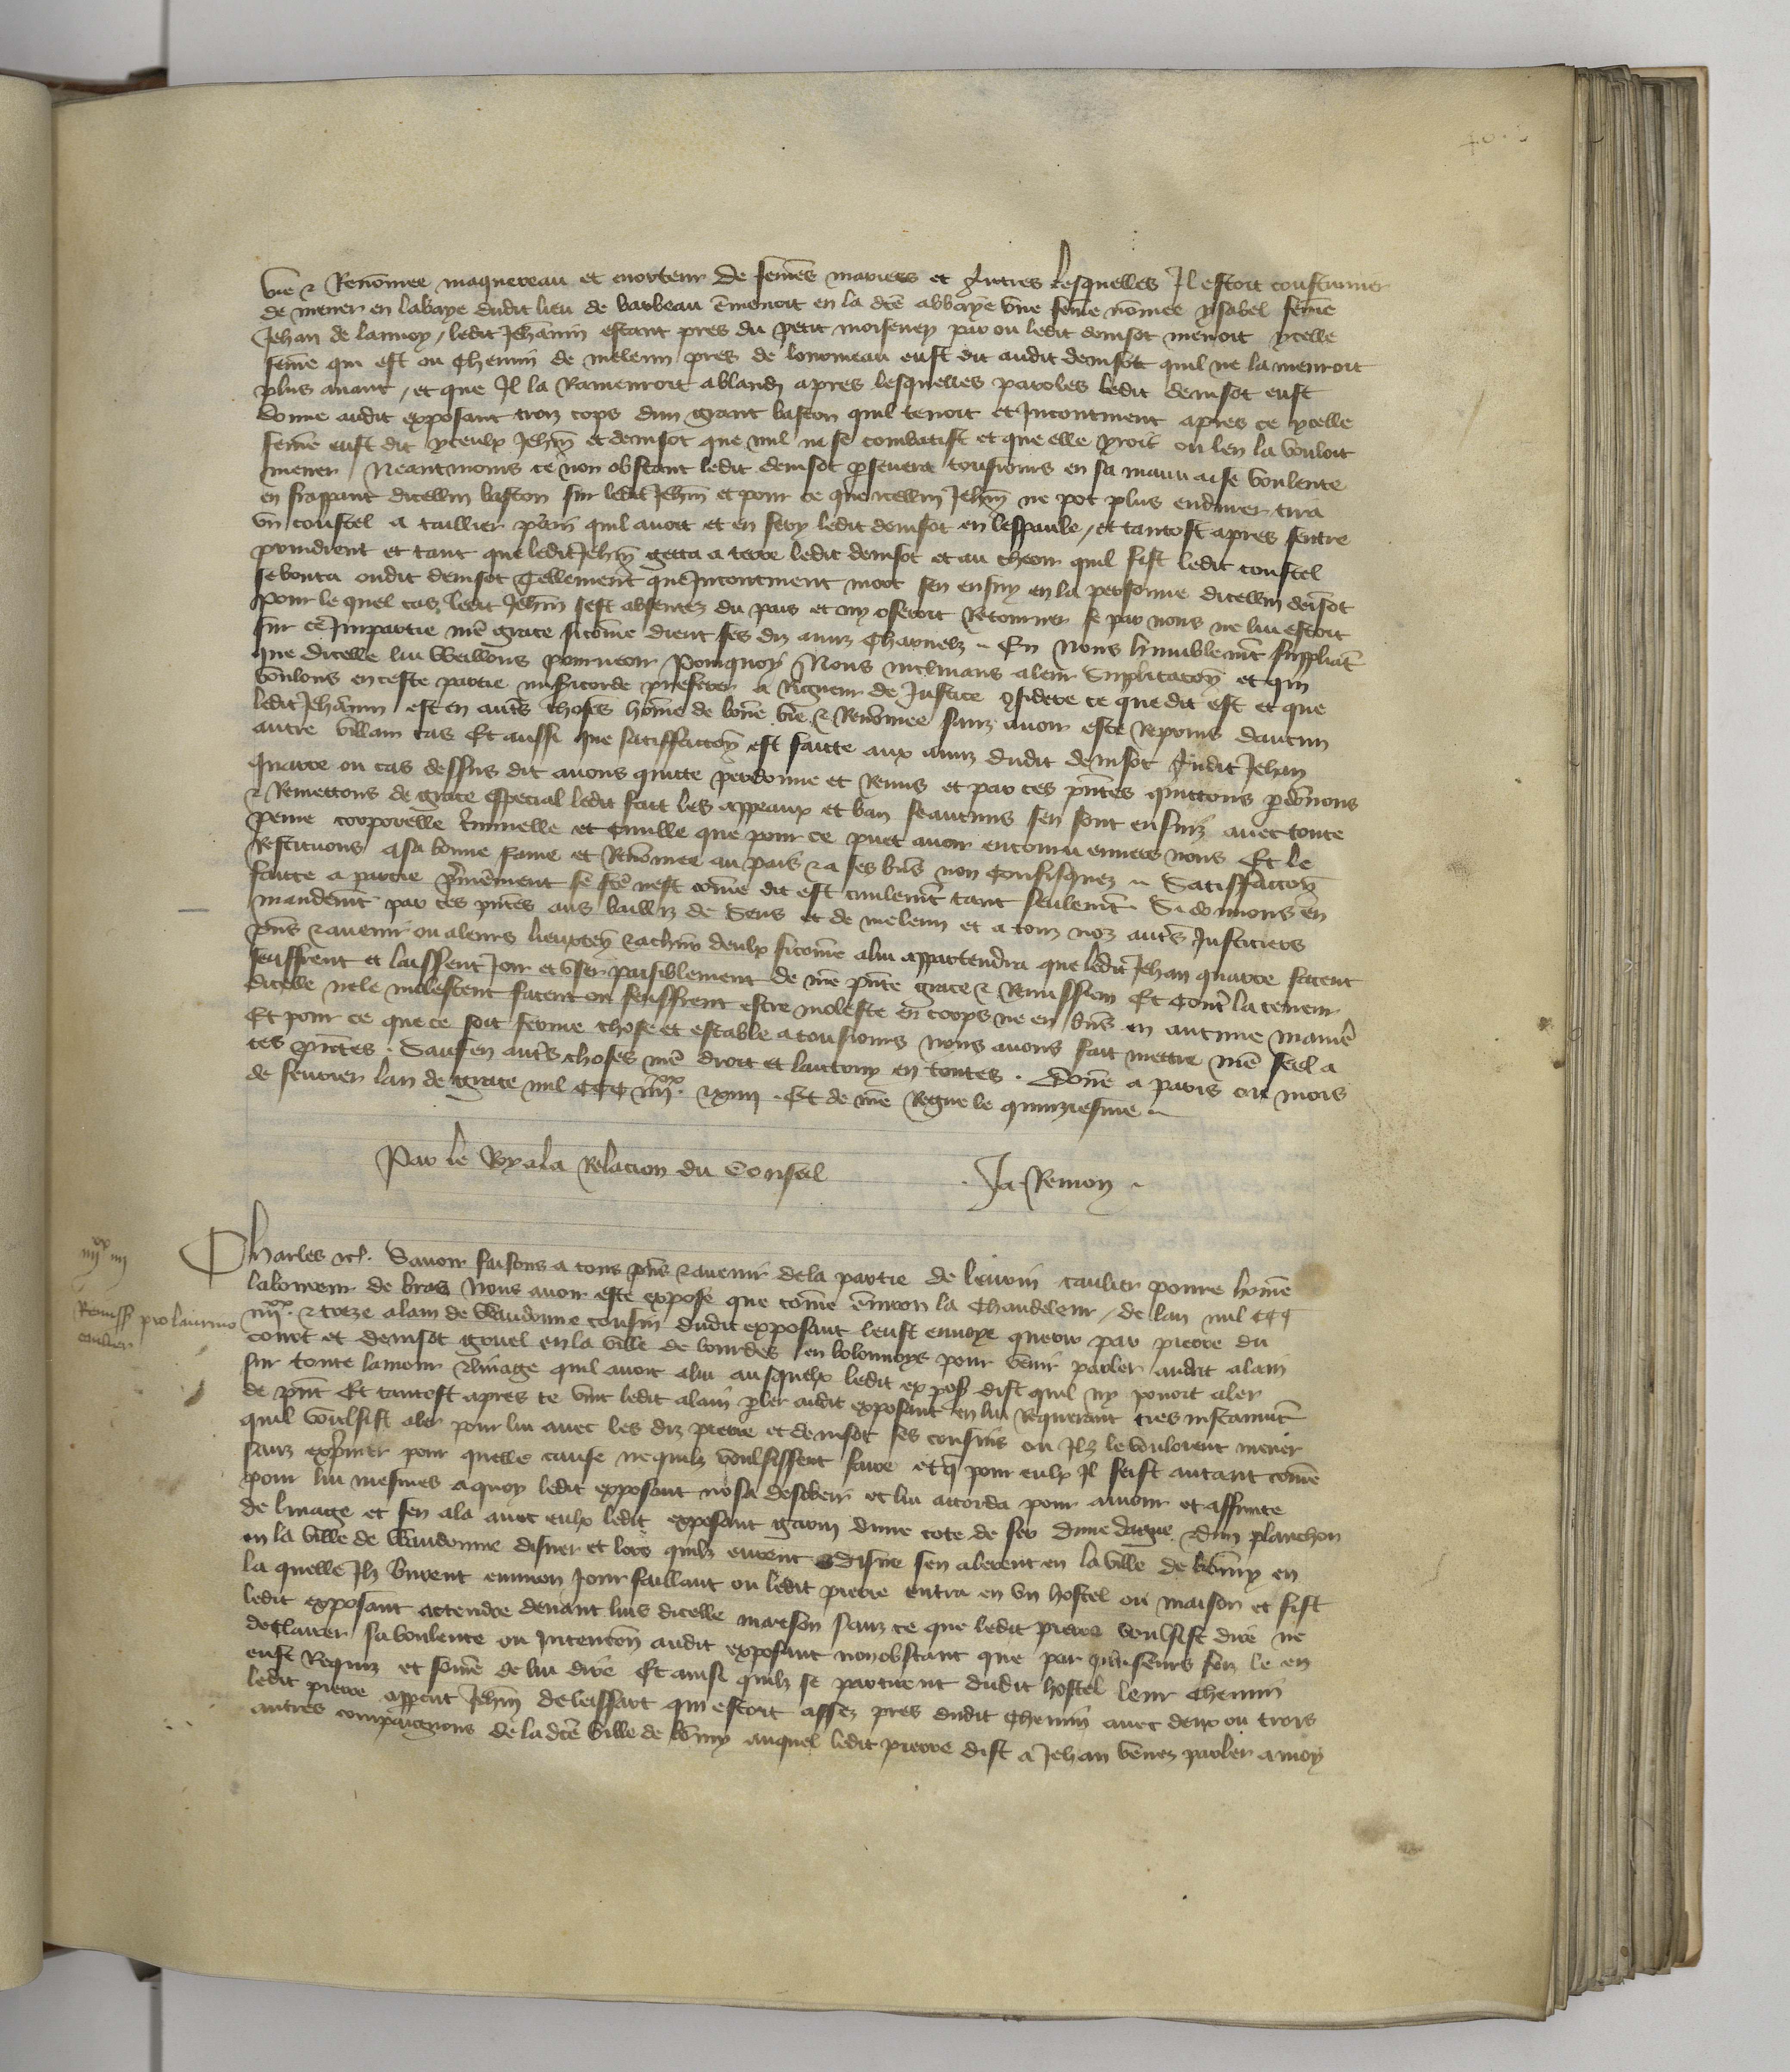 vie & Renommee maquereau et morteur de femes mariees et autres lesquelles Il estoit coustumier
de mener en labaye dudit lieu de barbeau emenoit en la dce abbaye vne feme nomee ysabel feme
Jehan de lannoy / ledit Jehannin estant pres du petit moisenen par ou ledit denisot menoit ycelle
feme qui est ou chemin de meleun pres de lonomeau eust dit audit denisot quil ne la menroit
plus auant / et que Il la Ramenroit ablandy apres lesquelles paroles ledit denisot eust
donne audit exposant troiz cops dun grant baston quil tenoit et Incontinent apres ce ycelle
feme eust dit yceulx Jehan et denisot que nul ne se combatist et que elle yroit ou len la vouloit
mener / Neantmoins ce non obstant ledit denisot pseuera tousiours en sa mauuaise voulente
en frappant dicellui baston sur ledit Jehan et pour ce que icellui Jehan ne pot plus endurer tira
vn coustel a taillier pain quil auoit et en fery ledit denisot en lespaule / et tantost apres sentre
prindrent et tant que ledit Jehan getta a terre ledit denisot et au cheoir quil fist ledit coustel
se bouta oudit denisot Tellement que Incontinent mort sen ensuy en la personne dicellui denisot
Pour le quel cas ledit Jehan sest absentez du pais et ny oseroit Retourner se par nous ne lui estoit
sur ce Impartie nre grace sicome dient ses diz amiz charnelz En Nous humblemt suppliat
que dicelle lui veillons pourueoir Pourquoy Nous inclinans aleur Supplicacon et qui
voulons en ceste partie misicorde preferer a Rigueur de Justice gsidere ce que dit est et que
ledit Jehannin est en autes choses home de bone vie & Renomee sanz auoir este Repris daucun
autre villain cas Et aussi que satisffaccon est faicte aux amiz dudit denisot Audit Jehan
Quarre ou cas dessus dit auons quitte perdonne et Remis et par ces pntes quittons pdonons
& Remettons de grace especial ledit fait les appeaux et ban seaucuns sen sont ensuiz auec toute
peine corporelle criminelle et ciuille que pour ce puet auoir encouru enuers nous Et le
Restituons a sa bonne fame et Renomee au pais & a ses bies non Confisquez Satisffaccon
faicte a partie premierement se fce nest come dit est ciuilemt tant seulemt Si donnons en
mandemt par ces pntes aus bailliz de Sens et de meleun et a touz noz autes Justiciers
pns & auenir ou aleurs lieuxten & achun deulx sicome alui appartendra que ledit Jehan quarre facent
seuffrent et laissent Joir et vser paisiblement de nre pnte grace & Remission Et contre la teneur
dicelle ne le molestent facent ou seuffrent estre moleste en corps ne en biens en aucune manie
Et pour ce que ce soit ferme chose et estable a tousiours Nous auons fait mettre nre seel a
ces pntes. Sauf en autes choses nre droit et lautruy en toutes. Done a paris ou mois
de feurier lan de grace mil CCC iiiixx. & xiiii. Et de nre Regne le quinziesme
Par le Roy ala Relacion du Conseil Ja. Remon
iiiixx iiii
Charles etc. Sauoir faisons a tous pns & auenir de la partie de leurin caulier poure home
laboureur de bras Nous auoir este expose que come enuiron la Chandeleur / de lan mil CCC
Remiss pro laurino
caulier
iiiixx & treze alain de Waudonne cousin dudit exposant leust enuoye querir par pierre du
court et denisot gouel en la ville de bourdes en bolonnoys pour venir parler audit alain
sur toute lamour & linage quil auoit alui ausquelx ledit expos dist quil ny pouoit aler
de pnt Et tantost apres ce vint ledit alain pler audit exposant en lui Requerant tres instanmt
quil voulsist aler pour lui auec les diz pierre et denisot ses cousins ou Ilz le vouloient mener
sanz exprimer pour quelle cause ne quilz voulsissent faire et q pour eulx Il feist autant come
pour lui mesmes a quoy ledit exposant nosa desobeir et lui accorda pour amour et affinite
de linage et sen ala auec eulx ledit exposant garni dune cote de fer dune dague & dun planchon
en la ville de Waudonne disner et lors quilz eurent Disne sen alerent en la ville de bomy en
la quelle Ilz vindrent enuiron Jour faillant ou ledit pierre entra en vn hostel ou maison et fist
ledit exposant attendre deuant luis dicelle maison sanz ce que ledit pierre voulsist dire ne
declairer sa voulente ou Intencon audit exposant nonobstant que par pluseurs foiz le en
eust Requis et some de lui dire Et ainsi quilz se partirent dudit hostel leur chemin
ledit pierre apperceut Jehan delessart qui estoit assez pres dudit chemin auec deux ou trois
autres compaignons de la dce ville de bomy auquel ledit pierre dist a Jehan venez parler a moy